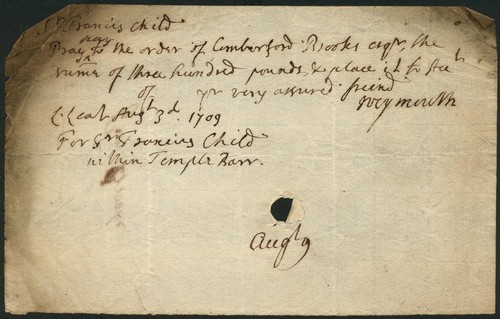 Sr Francis Child
pay
Pray to the order of Comberford Brooks esqr, the
summe of three hundred pounds & place it to Acct
of yr very assured friend
Weymouth
Augt 3d. 1709
For Sr Francis Child
within Temple Barr.
Augt 9